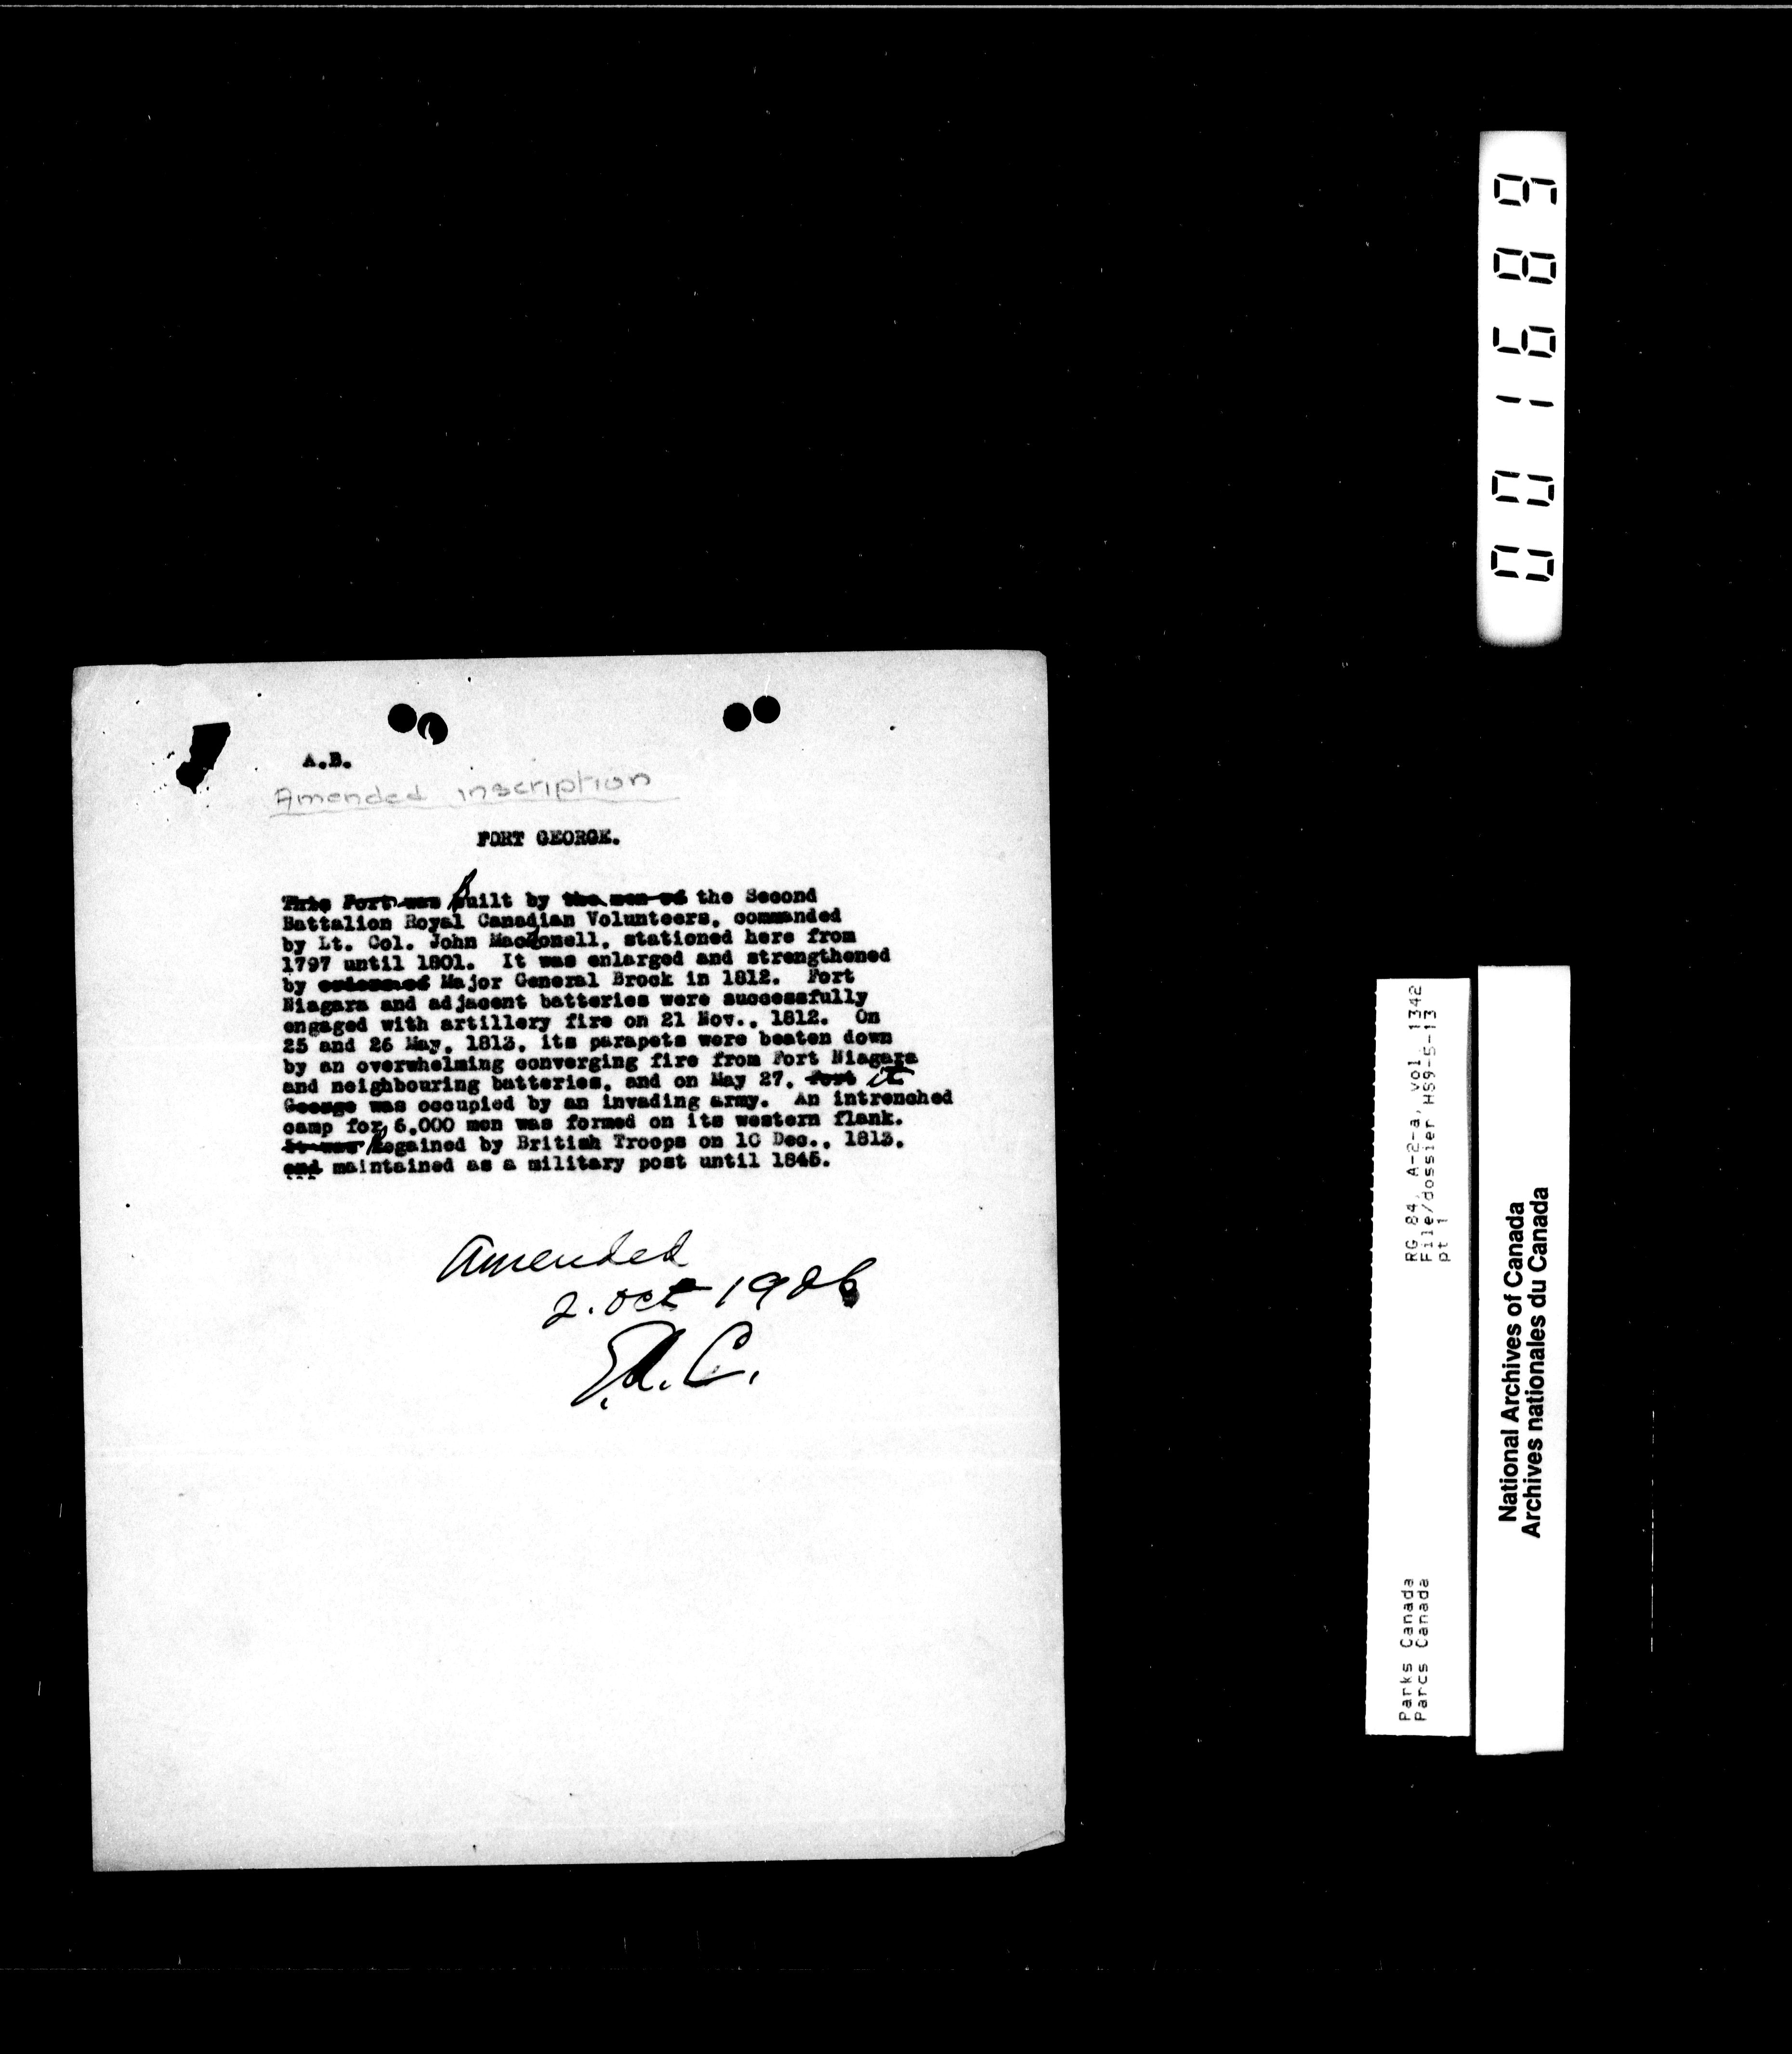 A.B.
Amended inscription
FORT GEORGE.
This Fort was Built by the men of the Second
Battalion Royal Canadian Volunteers, commanded
by Lt. Col. John Macdonell, stationed here from
1797 until 1801. It was enlarged and strengthened
by orders of Major General Brock in 1812. Fort
Niagara and adjacent batteries were successfully
engaged with artillery fire on 21 Nov., 1812. On
25 and 26 May, 1813, its parapets were beaten down
by an overwhelming converging fire from Fort Niagara
and neighbouring batteries, and on May 27, Fort it
George was occupied by an invading army. An intrenched
camp for 6,000 men was formed on its western flank.
It was Regained by British Troops on 10 Dec., 1813,
and maintained as a military post until 1845.
Amended
2. Oct 1926
001689
RG 84, A-2-a, vol. 1342
File/dossier HS9-5-13
pt 1
Parks Canada
Parcs Canada
National Archives of Canada
Archives nationales du Canada